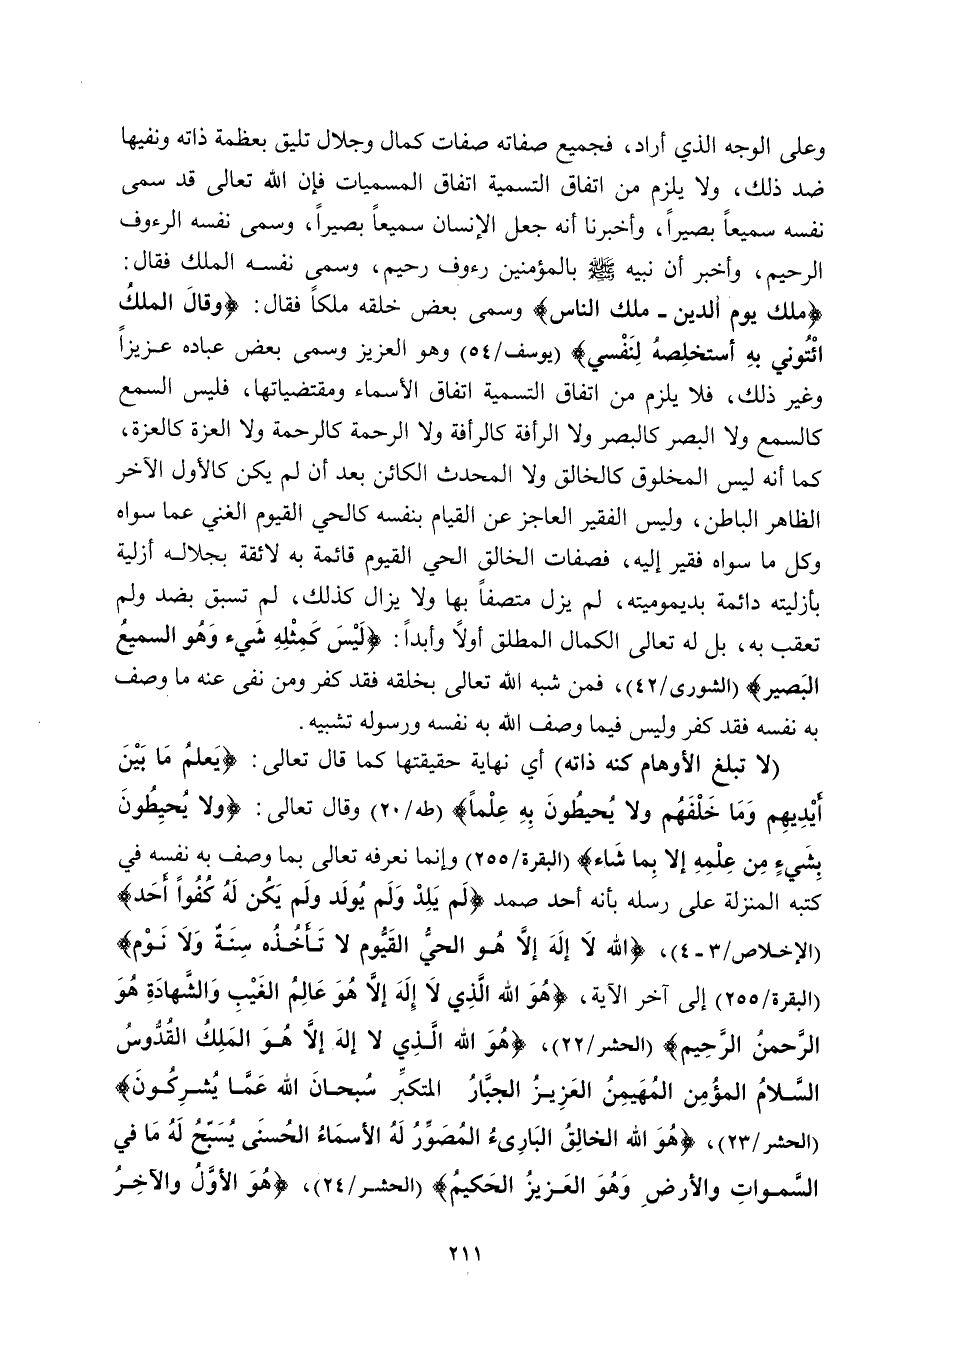 وعلى الوجه الذي أراد، فجميع صفاته صفات كمال وجلال تليق بعظمة ذاته ونفيها
ضد ذلك، ولا يلزم من اتفاق التسمية اتفاق المسميات فإن الله تعالى قد سمى
نفسه سميعاً بصيراً، وأخبرنا أنه جعل الإنسان سميعاً بصيراً، وسمى نفسه الرءوف
الرحيم، وأخبر أن نبيه ﷺ بالمؤمنين رءوف رحيم، وسمى نفسه الملك فقال:
﴿ملك يوم الدين - ملك الناس﴾ وسمى بعض خلقه ملكاً فقال: ﴿وقالَ الملكُ
ائْتُوني بِهِ أستخلِصهُ لِنَفْسي﴾ (يوسف/٥٤) وهو العزيز وسمى بعض عباده عزيزاً
وغير ذلك، فلا يلزم من اتفاق التسمية اتفاق الأسماء ومقتضياتها، فليس السمع
كالسمع ولا البصر كالبصر ولا الرأفة كالرأفة ولا الرحمة كالرحمة ولا العزة كالعزة،
كما أنه ليس المخلوق كالخالق ولا المحدث الكائن بعد أن لم يكن كالأول الآخر
الظاهر الباطن، وليس الفقير العاجز عن القيام بنفسه كالحي القيوم الغني عما سواه
وكل ما سواه فقير إليه، فصفات الخالق الحي القيوم قائمة به لائقة بجلاله أزلية
بأزليته دائمة بديموميته، لم يزل متصفاً بها ولا يزال كذلك، لم تسبق بضد ولم
تعقب به، بل له تعالى الكمال المطلق أولاً وأبداً: ﴿لَيْسَ كَمِثْلِهِ شَيء وَهُو السميعُ
البَصير﴾ (الشورى/٤٢)، فمن شبه الله تعالى بخلقه فقد كفر ومن نفى عنه ما وصف
به نفسه فقد كفر وليس فيما وصف الله به نفسه ورسوله تشبيه.
(لا تبلغ الأوهام كنه ذاته) أي نهاية حقيقتها كما قال تعالى: ﴿يَعلمُ مَا بَيْنَ
أَيْدِيهِم وَمَا خَلْفَهُم ولا يُحيطُونَ بِهِ عِلْماً﴾ (طه/٢٠) وقال تعالى: ﴿ولا يُحيطُونَ
بِشَيءٍ مِن عِلْمِهِ إلا بِما شَاء﴾ (البقرة/٢٥٥) وإنما نعرفه تعالى بما وصف به نفسه في
كتبه المنزلة على رسله بأنه أحد صمد ﴿لَم يَلِدْ وَلَم يُولَد ولَم يَكُن لَهُ كُفُواً أَحَد﴾
(الإخلاص/٣ - ٤)، ﴿الله لَا إِلَهَ إلاَّ هُو الحيُّ القَيُّوم لا تَأخُذُه سِنَةٌ وَلَا نَوْم﴾
(البقرة/٢٥٥) إلى آخر الآية، ﴿هُوَ الله الَّذِي لَا إِلَهَ إلاَّ هُوَ عَالِمُ الغَيْبِ وَالشَّهادَةِ هُوَ
الرَّحمنُ الرَّحِيم﴾ (الحشر/٢٢)، ﴿هُوَ الله الَّذِي لا إلهَ إلاَّ هُوَ المَلِكُ القُدُّوسُ
السَّلامُ المؤمِن المُهَيمِنُ العَزِيزُ الجبَّارُ المتكبِّر سُبحانَ الله عَمَّا يُشركُونَ﴾
(الحشر/٢٣)، ﴿هُوَ الله الخالِقُ البَارِىءُ المُصَوِّرُ لَهُ الأسمَاءُ الحُسنَى يُسَبِّحُ لَهُ مَا في
السَّمواتِ والأرضِ وَهُوَ العَزيزُ الحَكيمُ﴾ (الحشر/٢٤)، ﴿هُوَ الأوَّلُ والآخِرُ
٢١١